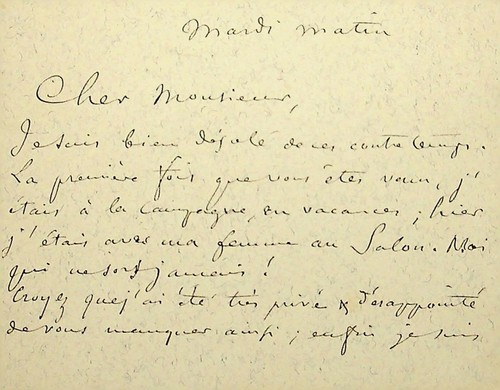 Mardi matin
Cher Monsieur,
Je suis bien désolé de ces contretemps.
La première fois que vous êtes venu, j'
étais à la Campagne, en vacances ; hier
j'étais avec ma femme au Salon. Moi
qui ne sors jamais !
Croyez que j'ai été très privé & désappointé
de vous manquer ainsi ; enfin je suis